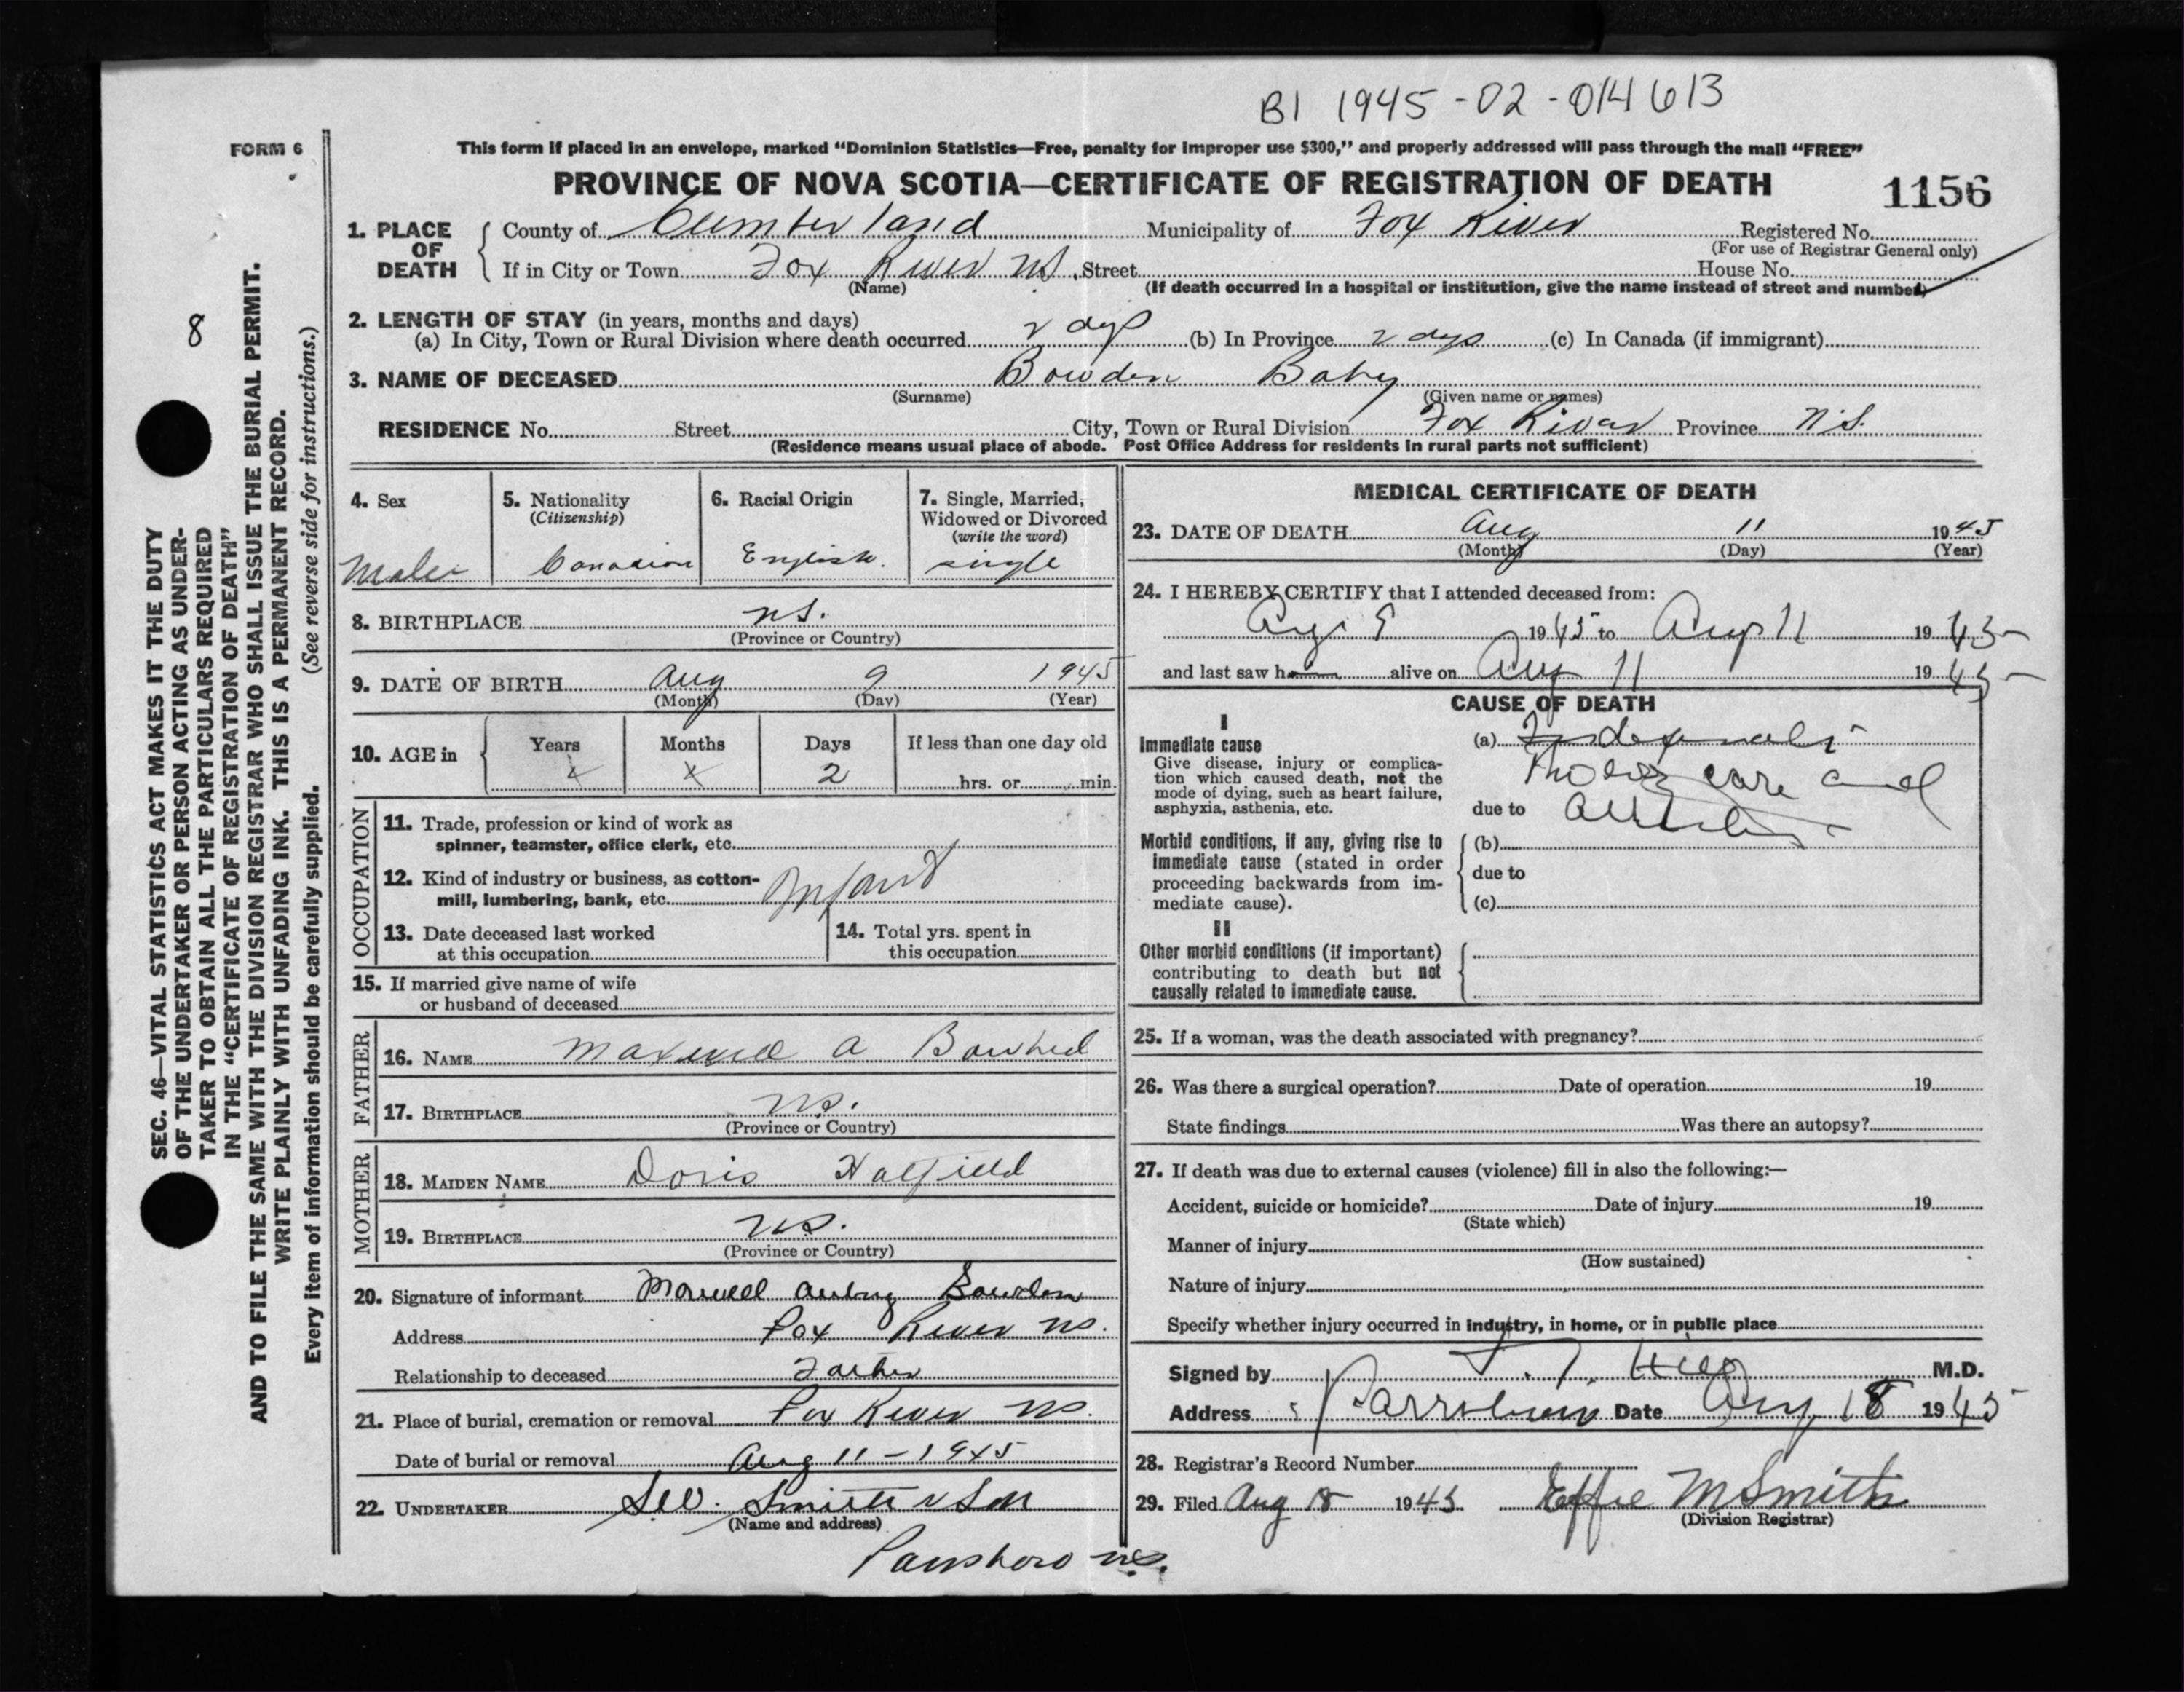 B1 1945-02-014613
FORM 6
This form if placed in an envelope, marked “Dominion Statistics—Free, penalty for improper use $300,” and properly addressed will pass through the mail “FREE”
PROVINCE OF NOVA SCOTIA—CERTIFICATE OF REGISTRATION OF DEATH 1156
1. PLACE OF DEATH
County of Cumberland Municipality of Fox River Registered No.
(For use of Registrar General only)
If in City or Town Fox River NS. Street House No.
(Name) (If death occurred in a hospital or institution, give the name instead of street and number)
2. LENGTH OF STAY (in years, months and days)
(a) In City, Town or Rural Division where death occurred 2 days (b) In Province 2 days (c) In Canada (if immigrant)
3. NAME OF DECEASED Bowden Baby
(Surname) (Given name or names)
RESIDENCE No. Street City, Town or Rural Division Fox River Province N.S.
(Residence means usual place of abode. Post Office Address for residents in rural parts not sufficient)
4. Sex
Male
5. Nationality
(Citizenship)
Canadian
6. Racial Origin
English.
7. Single, Married,
Widowed or Divorced
(write the word)
single
8. BIRTHPLACE NS.
(Province or Country)
9. DATE OF BIRTH Aug 9 1945
(Month) (Day) (Year)
10. AGE in
Years Months Days If less than one day old
x x 2 hrs. or min.
OCCUPATION
11. Trade, profession or kind of work as
spinner, teamster, office clerk, etc.
12. Kind of industry or business, as cotton-
mill, lumbering, bank, etc. Infant
13. Date deceased last worked
at this occupation
14. Total yrs. spent in
this occupation
15. If married give name of wife
or husband of deceased
FATHER
16. NAME Maxwell A
17. BIRTHPLACE NS.
(Province or Country)
MOTHER
18. MAIDEN NAME Doris Hatfield
19. BIRTHPLACE NS.
(Province or Country)
20. Signature of informant Maxwell Aubrey Bowden
Address Fox River NS.
Relationship to deceased Father
21. Place of burial, cremation or removal Fox River NS.
Date of burial or removal Aug 11 - 1945
22. UNDERTAKER Smith & Son
(Name and address)
Parrsboro NS.
MEDICAL CERTIFICATE OF DEATH
23. DATE OF DEATH Aug 11 1945
(Month) (Day) (Year)
24. I HEREBY CERTIFY that I attended deceased from:
Aug 9 1945 to Aug 11 1945
and last saw him alive on Aug 11 1945
CAUSE OF DEATH
I
Immediate cause
Give disease, injury or complica-
tion which caused death, not the
mode of dying, such as heart failure,
asphyxia, asthenia, etc.
(a)
care and
due to
Morbid conditions, if any, giving rise to
immediate cause (stated in order
proceeding backwards from im-
mediate cause).
(b)
due to
(c)
II
Other morbid conditions (if important)
contributing to death but not
causally related to immediate cause.
25. If a woman, was the death associated with pregnancy?
26. Was there a surgical operation? Date of operation 19
State findings Was there an autopsy?
27. If death was due to external causes (violence) fill in also the following:—
Accident, suicide or homicide? Date of injury 19
(State which)
Manner of injury
(How sustained)
Nature of injury
Specify whether injury occurred in industry, in home, or in public place
Signed by Hill M.D.
Address Parrsboro Date Aug 18 1945
28. Registrar's Record Number
29. Filed Aug 18 1945 Effie M Smith
(Division Registrar)
8
SEC. 46—VITAL STATISTICS ACT MAKES IT THE DUTY
OF THE UNDERTAKER OR PERSON ACTING AS UNDER-
TAKER TO OBTAIN ALL THE PARTICULARS REQUIRED
IN THE “CERTIFICATE OF REGISTRATION OF DEATH”
AND TO FILE THE SAME WITH THE DIVISION REGISTRAR WHO SHALL ISSUE THE BURIAL PERMIT.
WRITE PLAINLY WITH UNFADING INK. THIS IS A PERMANENT RECORD.
Every item of information should be carefully supplied. (See reverse side for instructions.)